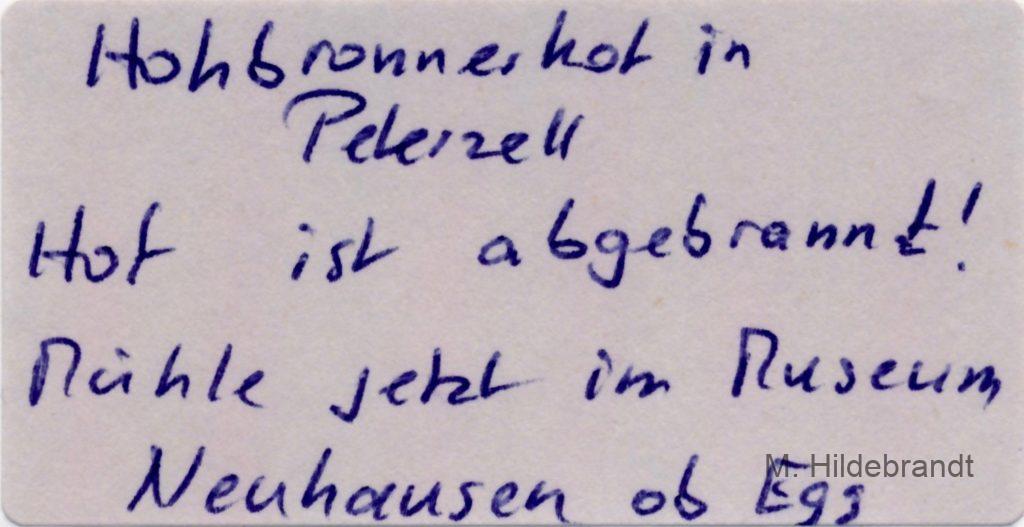 Hohbronnerhof in
Peterzell
Hof ist abgebrannt!
Mühle jetzt im Museum
Neuhausen ob Egg
M. Hildebrandt